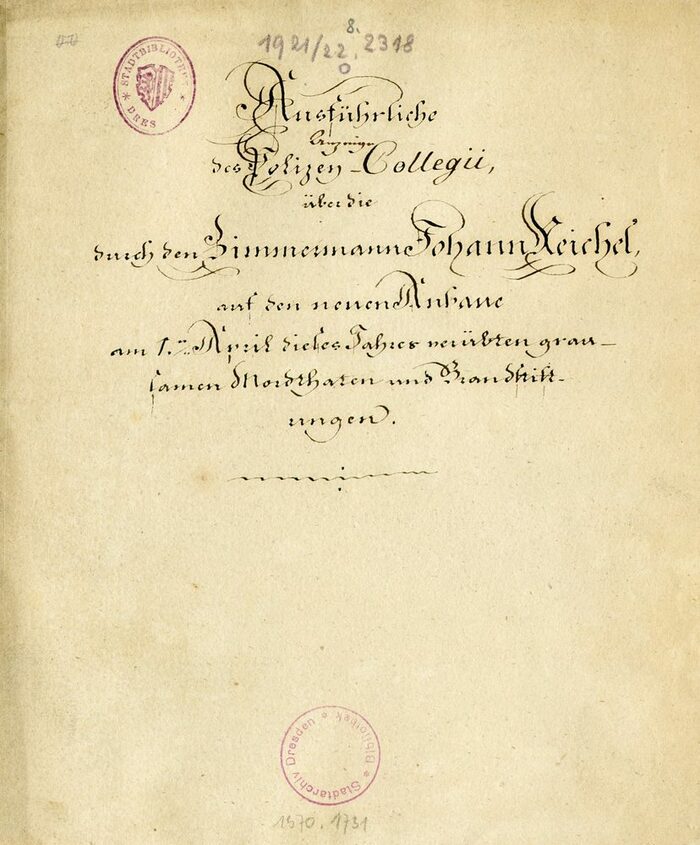 8.
1921/22 2318
0
STADTBIBLIOTHEK DRES
Ausführliche
Anzeige
des Polizey-Collegii,
über die
durch den Zimmermanne Johann Reichel,
auf den neuen Anbaue
am 1. April dieses Jahres verübten grau-
samen Mordthaten und Brandstift-
ungen.
Stadtarchiv Dresden * Bibliothek *
1570. 1731